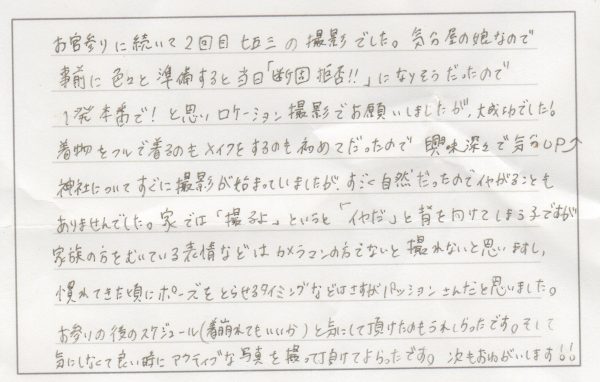 お宮参りに続いて2回目 七五三の撮影でした。気分屋の娘なので
事前に色々と準備すると当日「断固拒否!!」になりそうだったので
1発本番で!と思いロケーション撮影でお願いしましたが、大成功でした!
着物をフルで着るのもメイクをするのも初めてだったので 興味深々で気分UP↑
神社についてすぐに撮影が始まっていましたが、すごく自然だったのでイヤがることも
ありませんでした。家では「撮るよ」というと「イヤだ」と背を向けてしまう子ですが
家族の方をむいている表情などはカメラマンの方でないと撮れないと思いますし、
慣れてきた頃にポーズをとらせるタイミングなどはさすがパッションさんだと思いました。
お参りの後のスケジュール(着崩れてもいいか)と気にして頂けたのもうれしかったです。そして
気にしなくて良い時にアクティブな写真を撮って頂けてよかったです。次もおねがいします!!